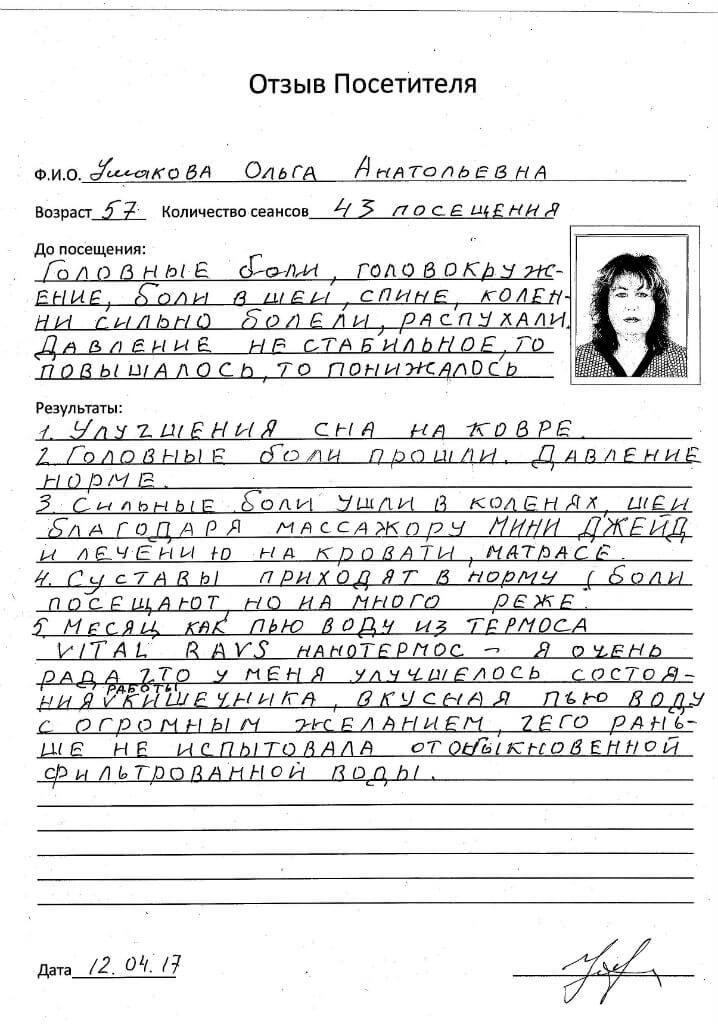 Отзыв Посетителя
Ф.И.О. Ушакова Ольга Анатольевна
Возраст 57 Количество сеансов 43 посещения
До посещения:
Головные боли, головокруж-
ение, боли в шеи, спине, колен-
ни сильно болели, распухали.
Давление не стабильное, то
повышалось, то понижалось
Результаты:
1. Улучшения сна на ковре.
2. Головные боли прошли. Давление
норме.
3. Сильные боли ушли в коленях, шеи
благодаря массажору мини джейд
и лечению на кровати, матрасе.
4. Суставы приходят в норму (боли
посещают, но на много реже.
5. Месяц как пью воду из термоса
VITAL RAYS нанотермос – я очень
рада что у меня улучшелось состоя-
ния работы кишечника, вкусная пью воду
с огромным желанием, чего рань-
ше не испытовала от обыкновенной
фильтрованной воды.
Дата 12.04.17